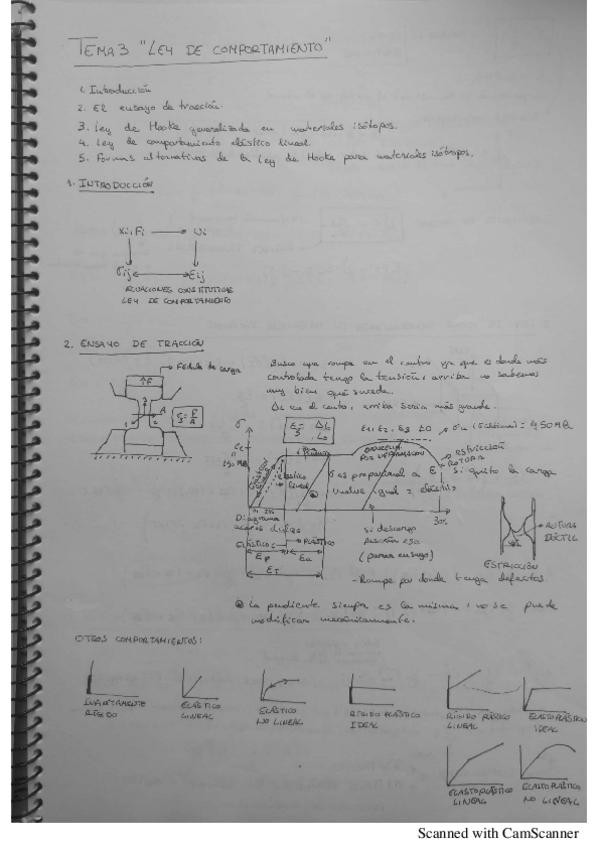 TEMA 3 "LEY DE COMPORTAMIENTO"
1. Introducción
2. El ensayo de tracción.
3. Ley de Hooke generalizada en materiales isótopos.
4. Ley de comportamiento elástico lineal.
5. Formas alternativas de la Ley de Hooke para materiales isótropos.
1. INTRODUCCIÓN
Xi, Fi → Ui
σij ↔ Eij
ECUACIONES CONSTITUTIVAS
LEY DE COMPORTAMIENTO
2. ENSAYO DE TRACCIÓN
Célula de carga
Busco que rompa en el centro ya que es donde más
controlada tengo la tensión, arriba no sabemos
muy bien qué sucede.
ΔL en el centro, arriba sería más grande.
F
A
σ
ESTRICCIÓN
ROTURA
σ es proporcional a E
si quito la carga
vuelve igual
elástico
lineal
30%
Diagrama
ELÁSTICO
PLÁSTICO
si descargo
(parar ensayo)
RUTURA
DÚCTIL
ESTRICCIÓN
- Rompe por donde tenga defectos.
La pendiente siempre es la misma, no se puede
modificar mecánicamente.
OTROS COMPORTAMIENTOS:
RÍGIDO
ELÁSTICO
LINEAL
ELÁSTICO
NO LINEAL
RÍGIDO PLÁSTICO
IDEAL
RÍGIDO PLÁSTICO
LINEAL
ELASTOPLÁSTICO
IDEAL
ELASTOPLÁSTICO
LINEAL
ELASTOPLÁSTICO
NO LINEAL
Scanned with CamScanner